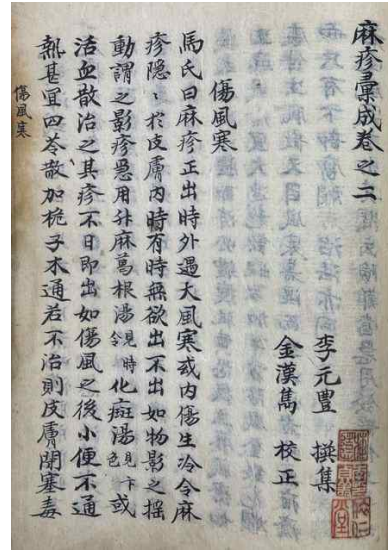 麻疹彙成卷之二
李元豊 撰集
金漢雋 校正
傷風寒
馬氏曰麻疹正出時外遇大風寒或內傷生冷令麻
疹隱〻於皮膚內時有時無欲出不出如物影之搖
動謂之影疹急用升麻葛根湯見時令化斑湯見卞色或
活血散治之其疹不日即出如傷風之後小便不通
熱甚宜四苓散加梔子木通若不治則皮膚閉塞毒
傷風寒